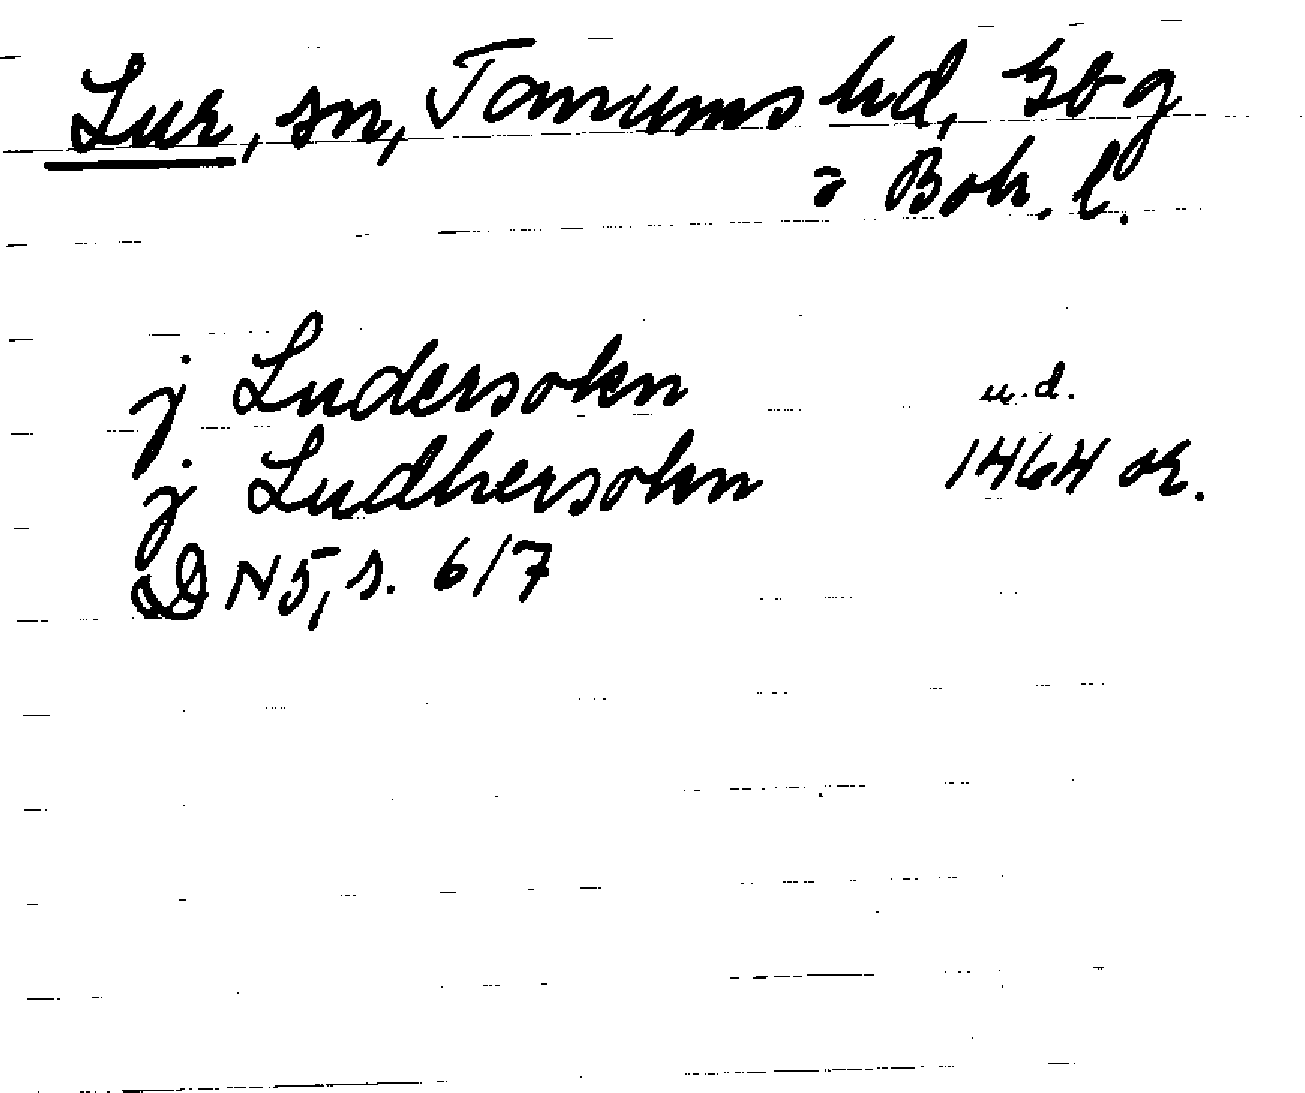 Lur, sn, Tanums hd, Gbg
o Boh. l.
j Ludersokn u.d.
j Ludhersokn 1464 or.
DN 5, s. 617